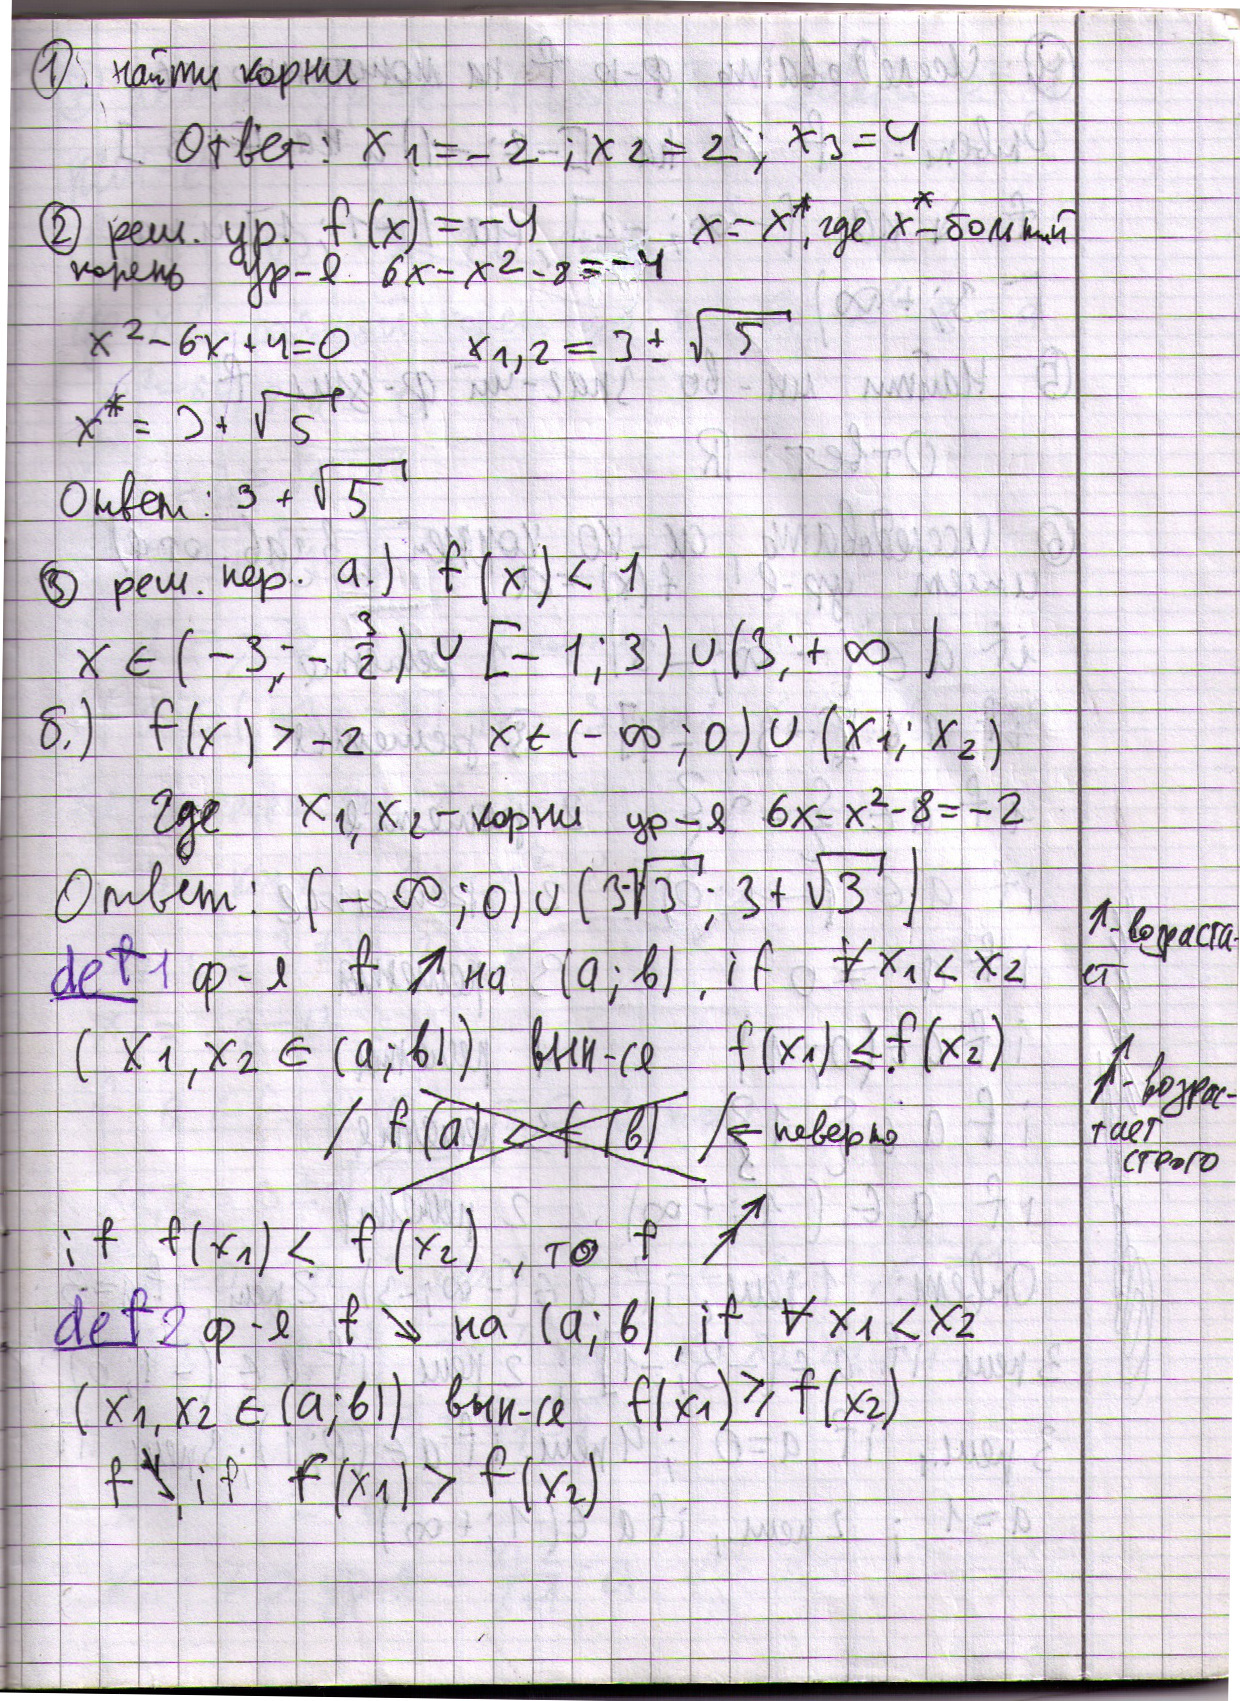 ① найти корни
Ответ: x1 = -2; x2 = 2; x3 = 4
② реш. ур. f(x) = -4 x = x*, где x* - больший
корень ур-я 6x - x² - 8 = -4
x² - 6x + 4 = 0 x1,2 = 3 ± √5
x* = 3 + √5
Ответ: 3 + √5
③ реш. нер. а.) f(x) < 1
x ∈ (-3; -3/2) ∪ [-1; 3) ∪ (3; +∞)
б.) f(x) > -2 x ∈ (-∞; 0) ∪ (x1; x2)
где x1, x2 - корни ур-я 6x - x² - 8 = -2
Ответ: (-∞; 0) ∪ (3-√3; 3+√3)
def 1 ф-я f ↗ на (a; b), if ∀ x1 < x2
(x1, x2 ∈ (a; b)) вып-ся f(x1) ≤ f(x2)
/ f(a) < f(b) / ← неверно
if f(x1) < f(x2), то f ↗↗
def 2 ф-я f ↘ на (a; b), if ∀ x1 < x2
(x1, x2 ∈ (a; b)) вып-ся f(x1) ≥ f(x2)
f ↘↘, if f(x1) > f(x2)
↗ - возраста-
ет
↗↗ - возрас-
тает
строго